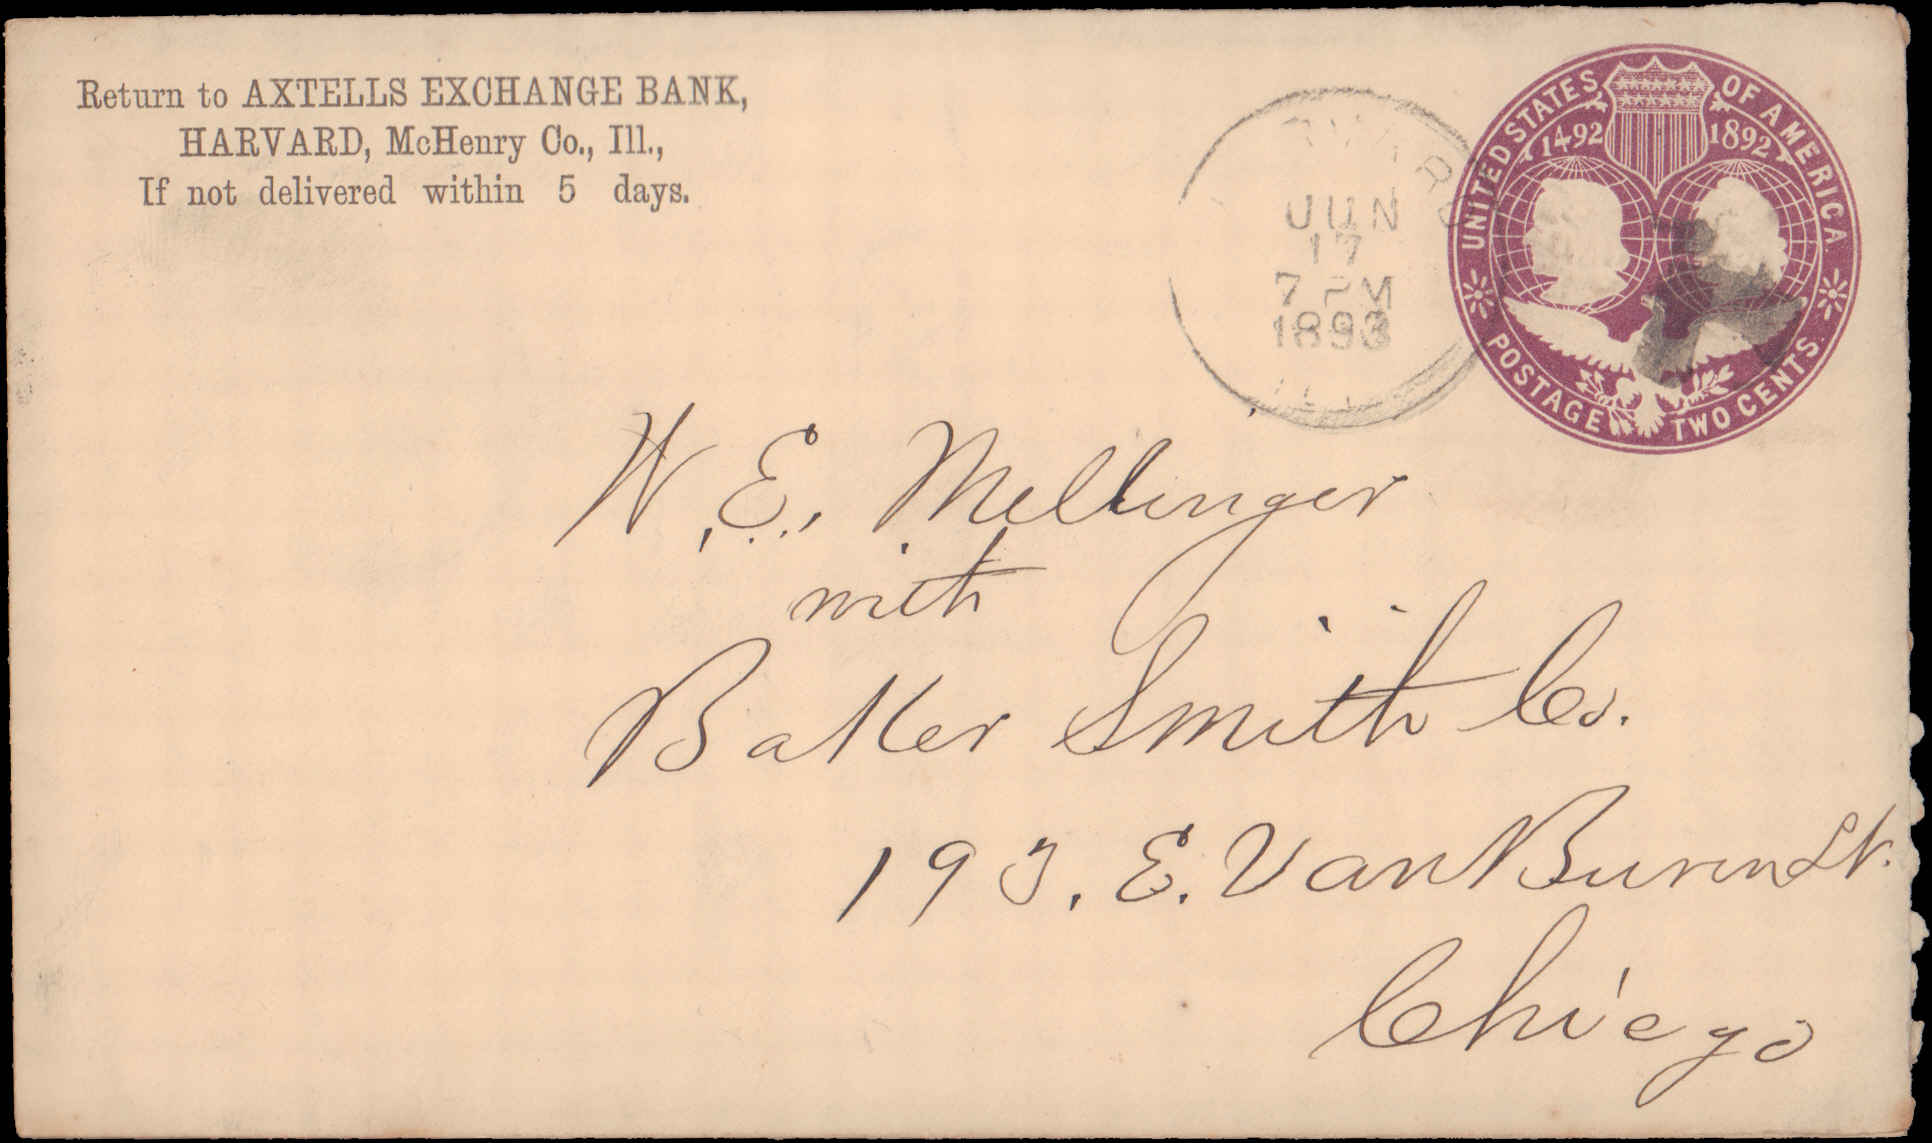 Return to AXTELLS EXCHANGE BANK,
HARVARD, McHenry Co., Ill.,
If not delivered within 5 days.
JUN
17
7 PM
1893
ILL
UNITED STATES OF AMERICA
1492 1892
POSTAGE TWO CENTS.
W. E. Mellinger
with
Baker Smith Co.
193. E. Van Buren St.
Chicago